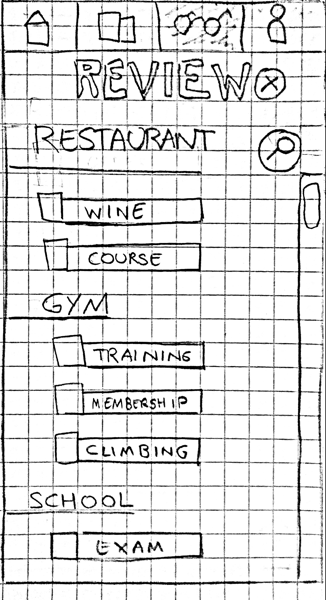 REVIEW
RESTAURANT
WINE
COURSE
GYM
TRAINING
MEMBERSHIP
CLIMBING
SCHOOL
EXAM